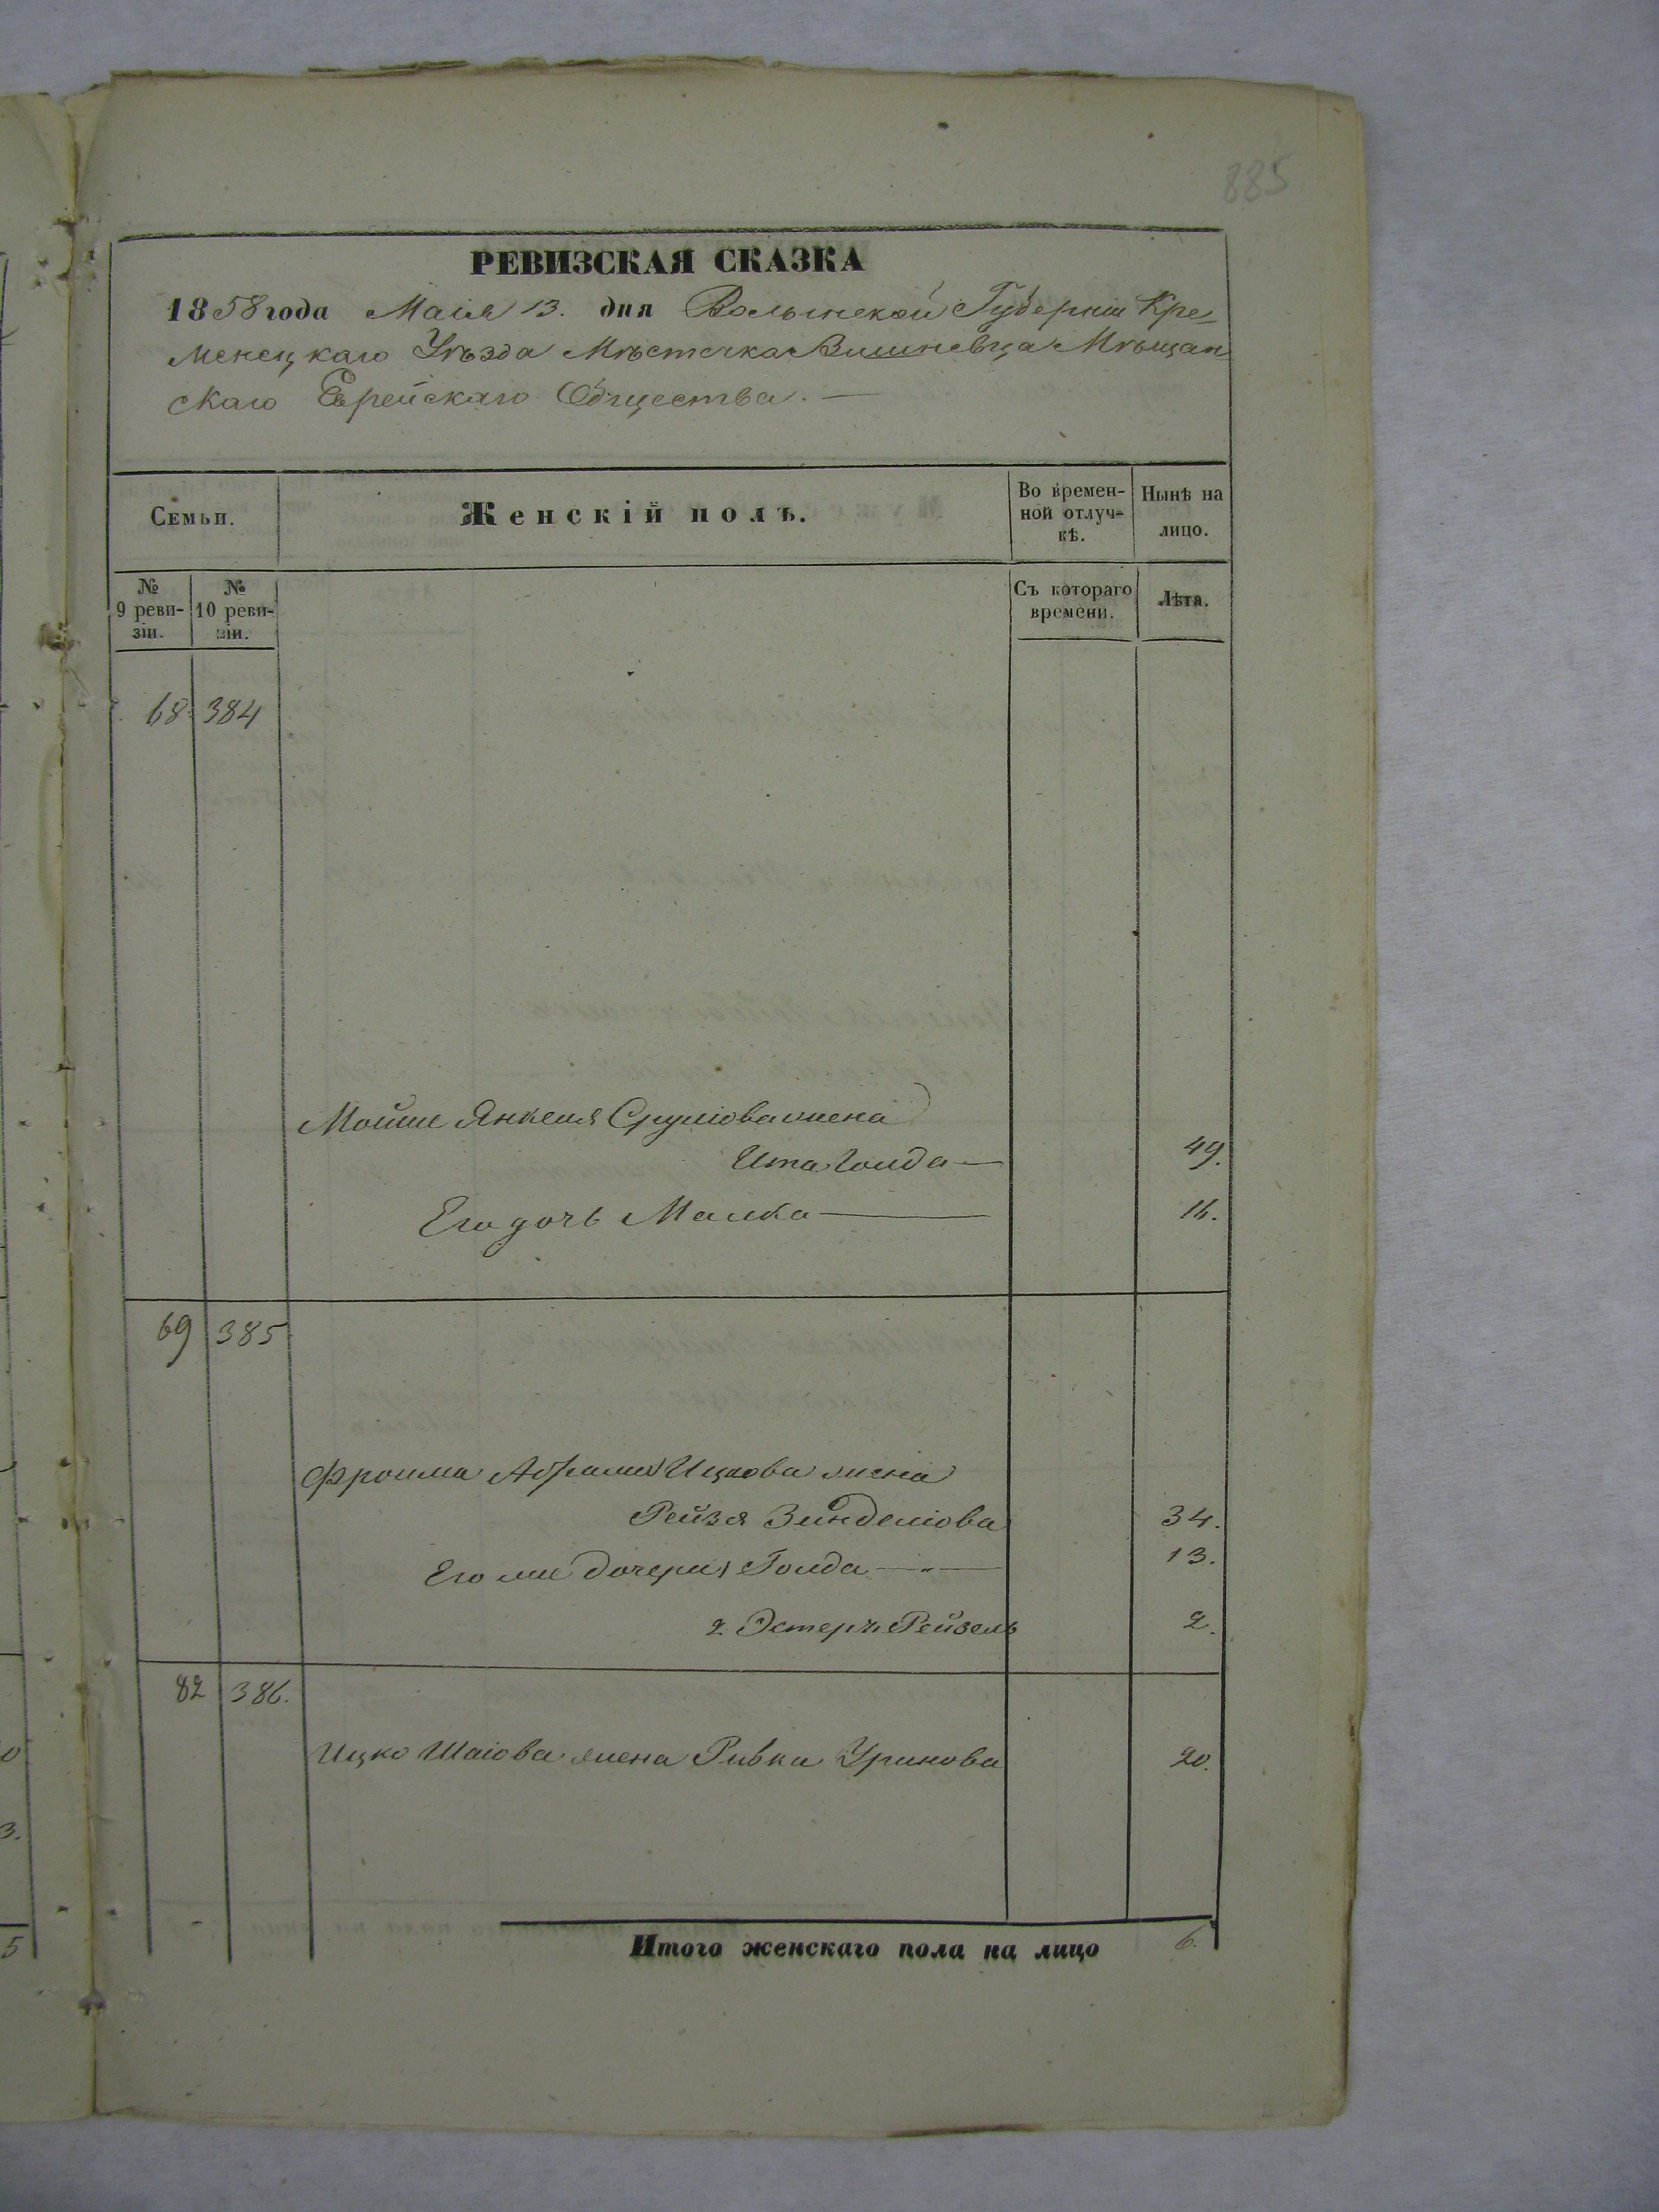 885
РЕВИЗСКАЯ СКАЗКА
1858 года Маія 13. дня Волынской Губерніи Кре-
менецкаго Уѣзда Мѣстечка Вишневца Мѣщан
скаго Еврейскаго Общества. —
Семьи.
Женскій полъ.
Во времен-
ной отлуч-
кѣ.
Нынѣ на
лицо.
№
9 реви-
зіи.
№
10 реви-
зіи.
Съ котораго
времени.
Лѣта.
68. 384
Мойше Янкеля Сруліова жена
Ита Голда — 49.
Его дочь Малка — 16.
69 385
Фроима Абрама Ицкова жена
Рейзя Зинделіова 34.
Его же дочери 1 Голда — „ — 13.
2. Эстеръ Рейзель 2.
82 386.
Ицко Шаіова жена Ривка Уринова 20.
Итого женскаго пола на лицо 6.